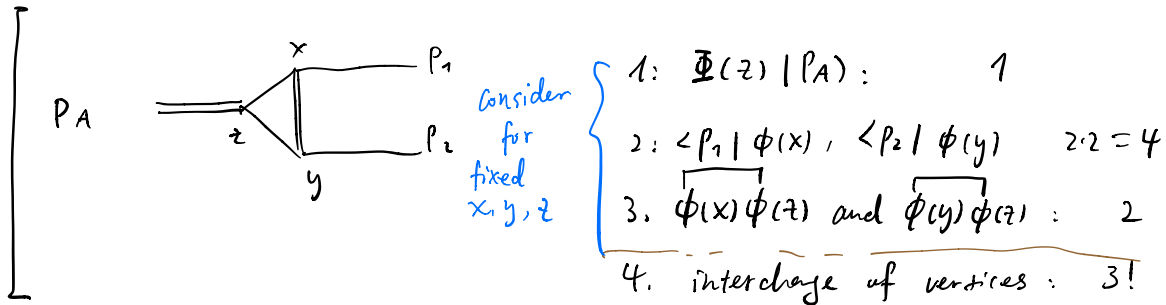 x
p₁
P_A
z
p₂
y
consider
for
fixed
x, y, z
1: Φ(z) | p_A⟩ : 1
2: <p₁ | ϕ(x) , <p₂ | ϕ(y) 2·2 = 4
3. ϕ(x)ϕ(z) and ϕ(y)ϕ(z) : 2
4. interchange of vertices : 3!